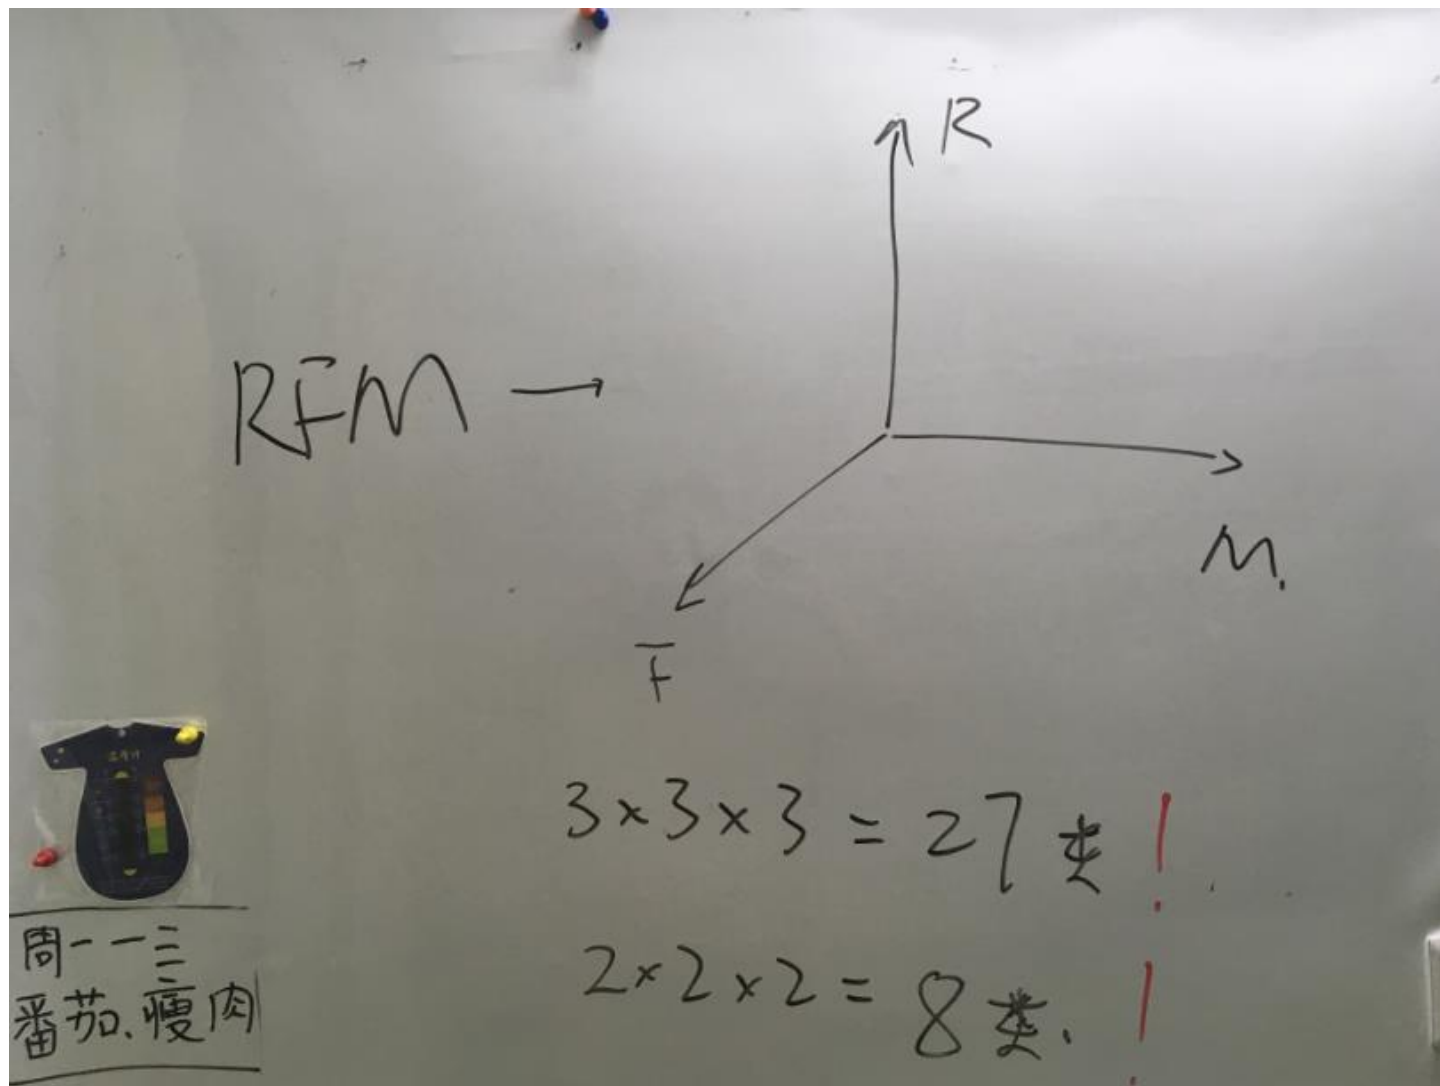 R
RFM →
M.
F
3×3×3=27类!
2×2×2=8类.!
周一一三
番茄、瘦肉